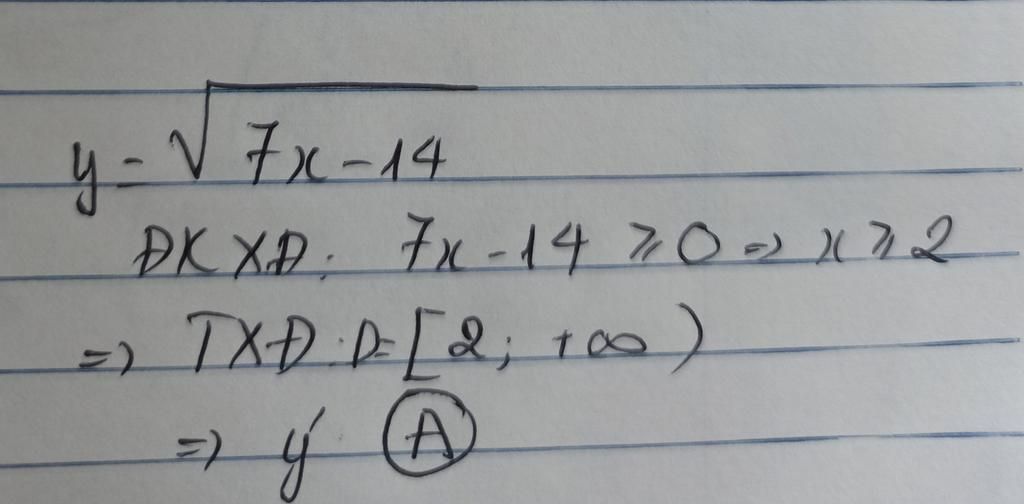 y = √7x - 14
ĐKXĐ: 7x - 14 ≥ 0 => x ≥ 2
=> TXĐ: D = [2; +∞)
=> ý (A)